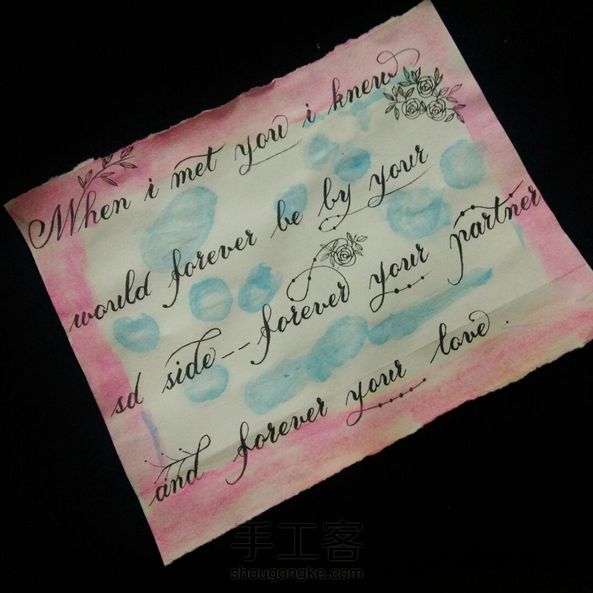 When i met you i knew
would forever be by your
sd side--forever your partner
and forever your love.
手工客
shougongke.com